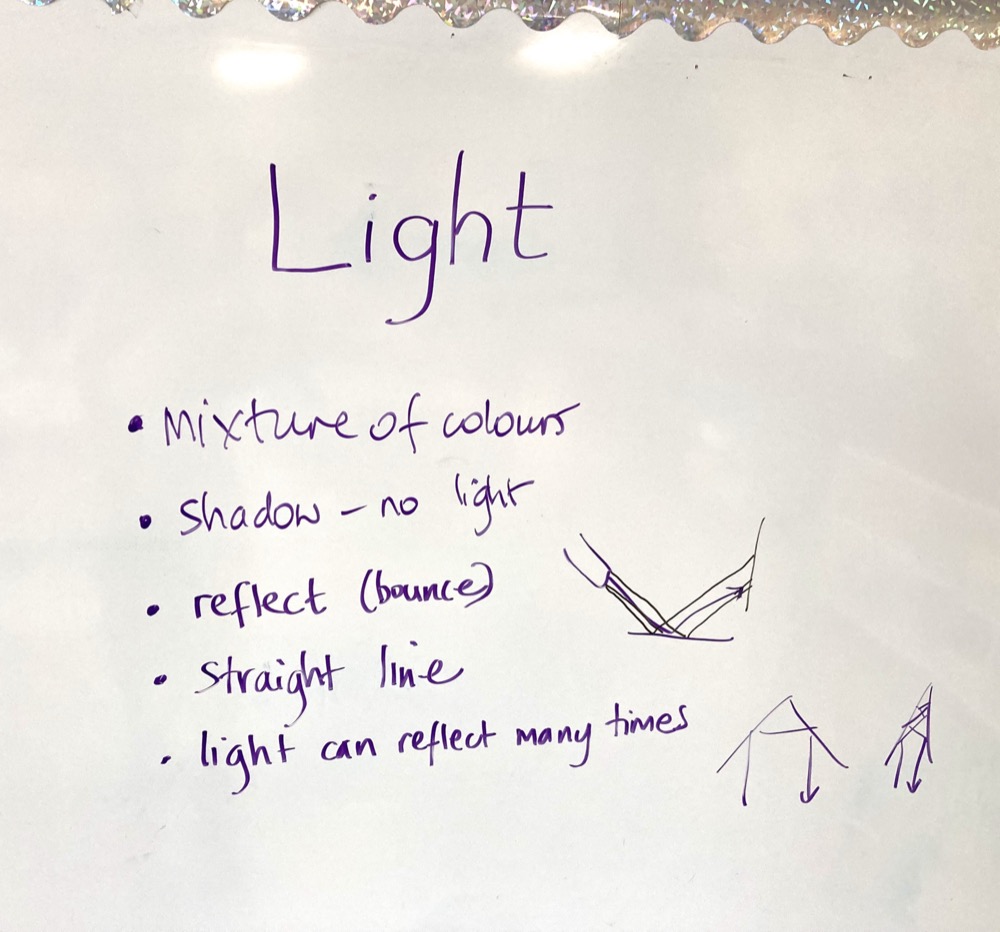 Light
• Mixture of colours
• Shadow - no light
• reflect (bounce)
• straight line
• light can reflect many times